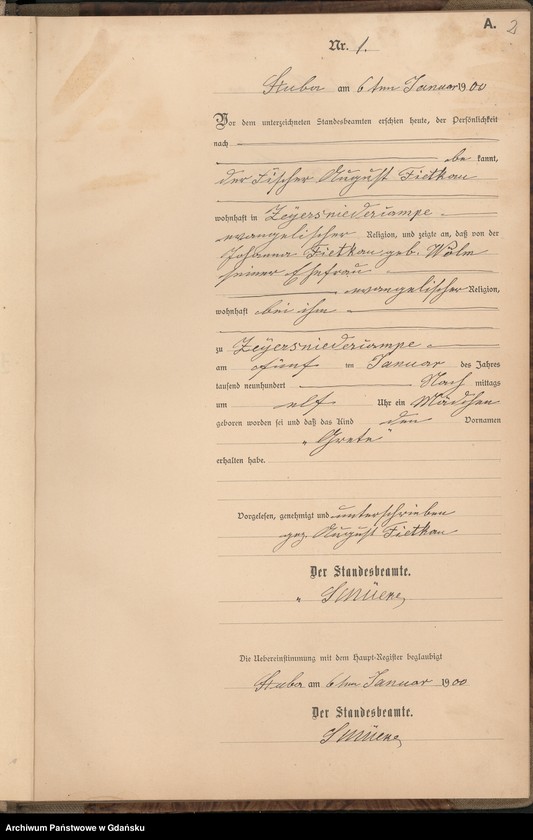 A. 2
Nr. 1.
Stuba am 6ten Januar 1900
Vor dem unterzeichneten Standesbeamten erschien heute, der Persönlichkeit
nach
be kannt,
der Fischer August Fietkau
wohnhaft in Zeyersniedercampe
evangelischer Religion, und zeigte an, daß von der
Johanna Fietkau geb. Wölm
seiner Ehefrau
evangelischer Religion,
wohnhaft bei ihm
zu Zeyersniedercampe
am fünf ten Januar des Jahres
tausend neunhundert Nach mittags
um elf Uhr ein Mädchen
geboren worden sei und daß das Kind den Vornamen
„Grete"
erhalten habe.
Vorgelesen, genehmigt und unterschrieben
gez August Fietkau
Der Standesbeamte.
Die Uebereinstimmung mit dem Haupt-Register beglaubigt
Stuba am 6ten Januar 1900
Der Standesbeamte.
Archiwum Państwowe w Gdańsku